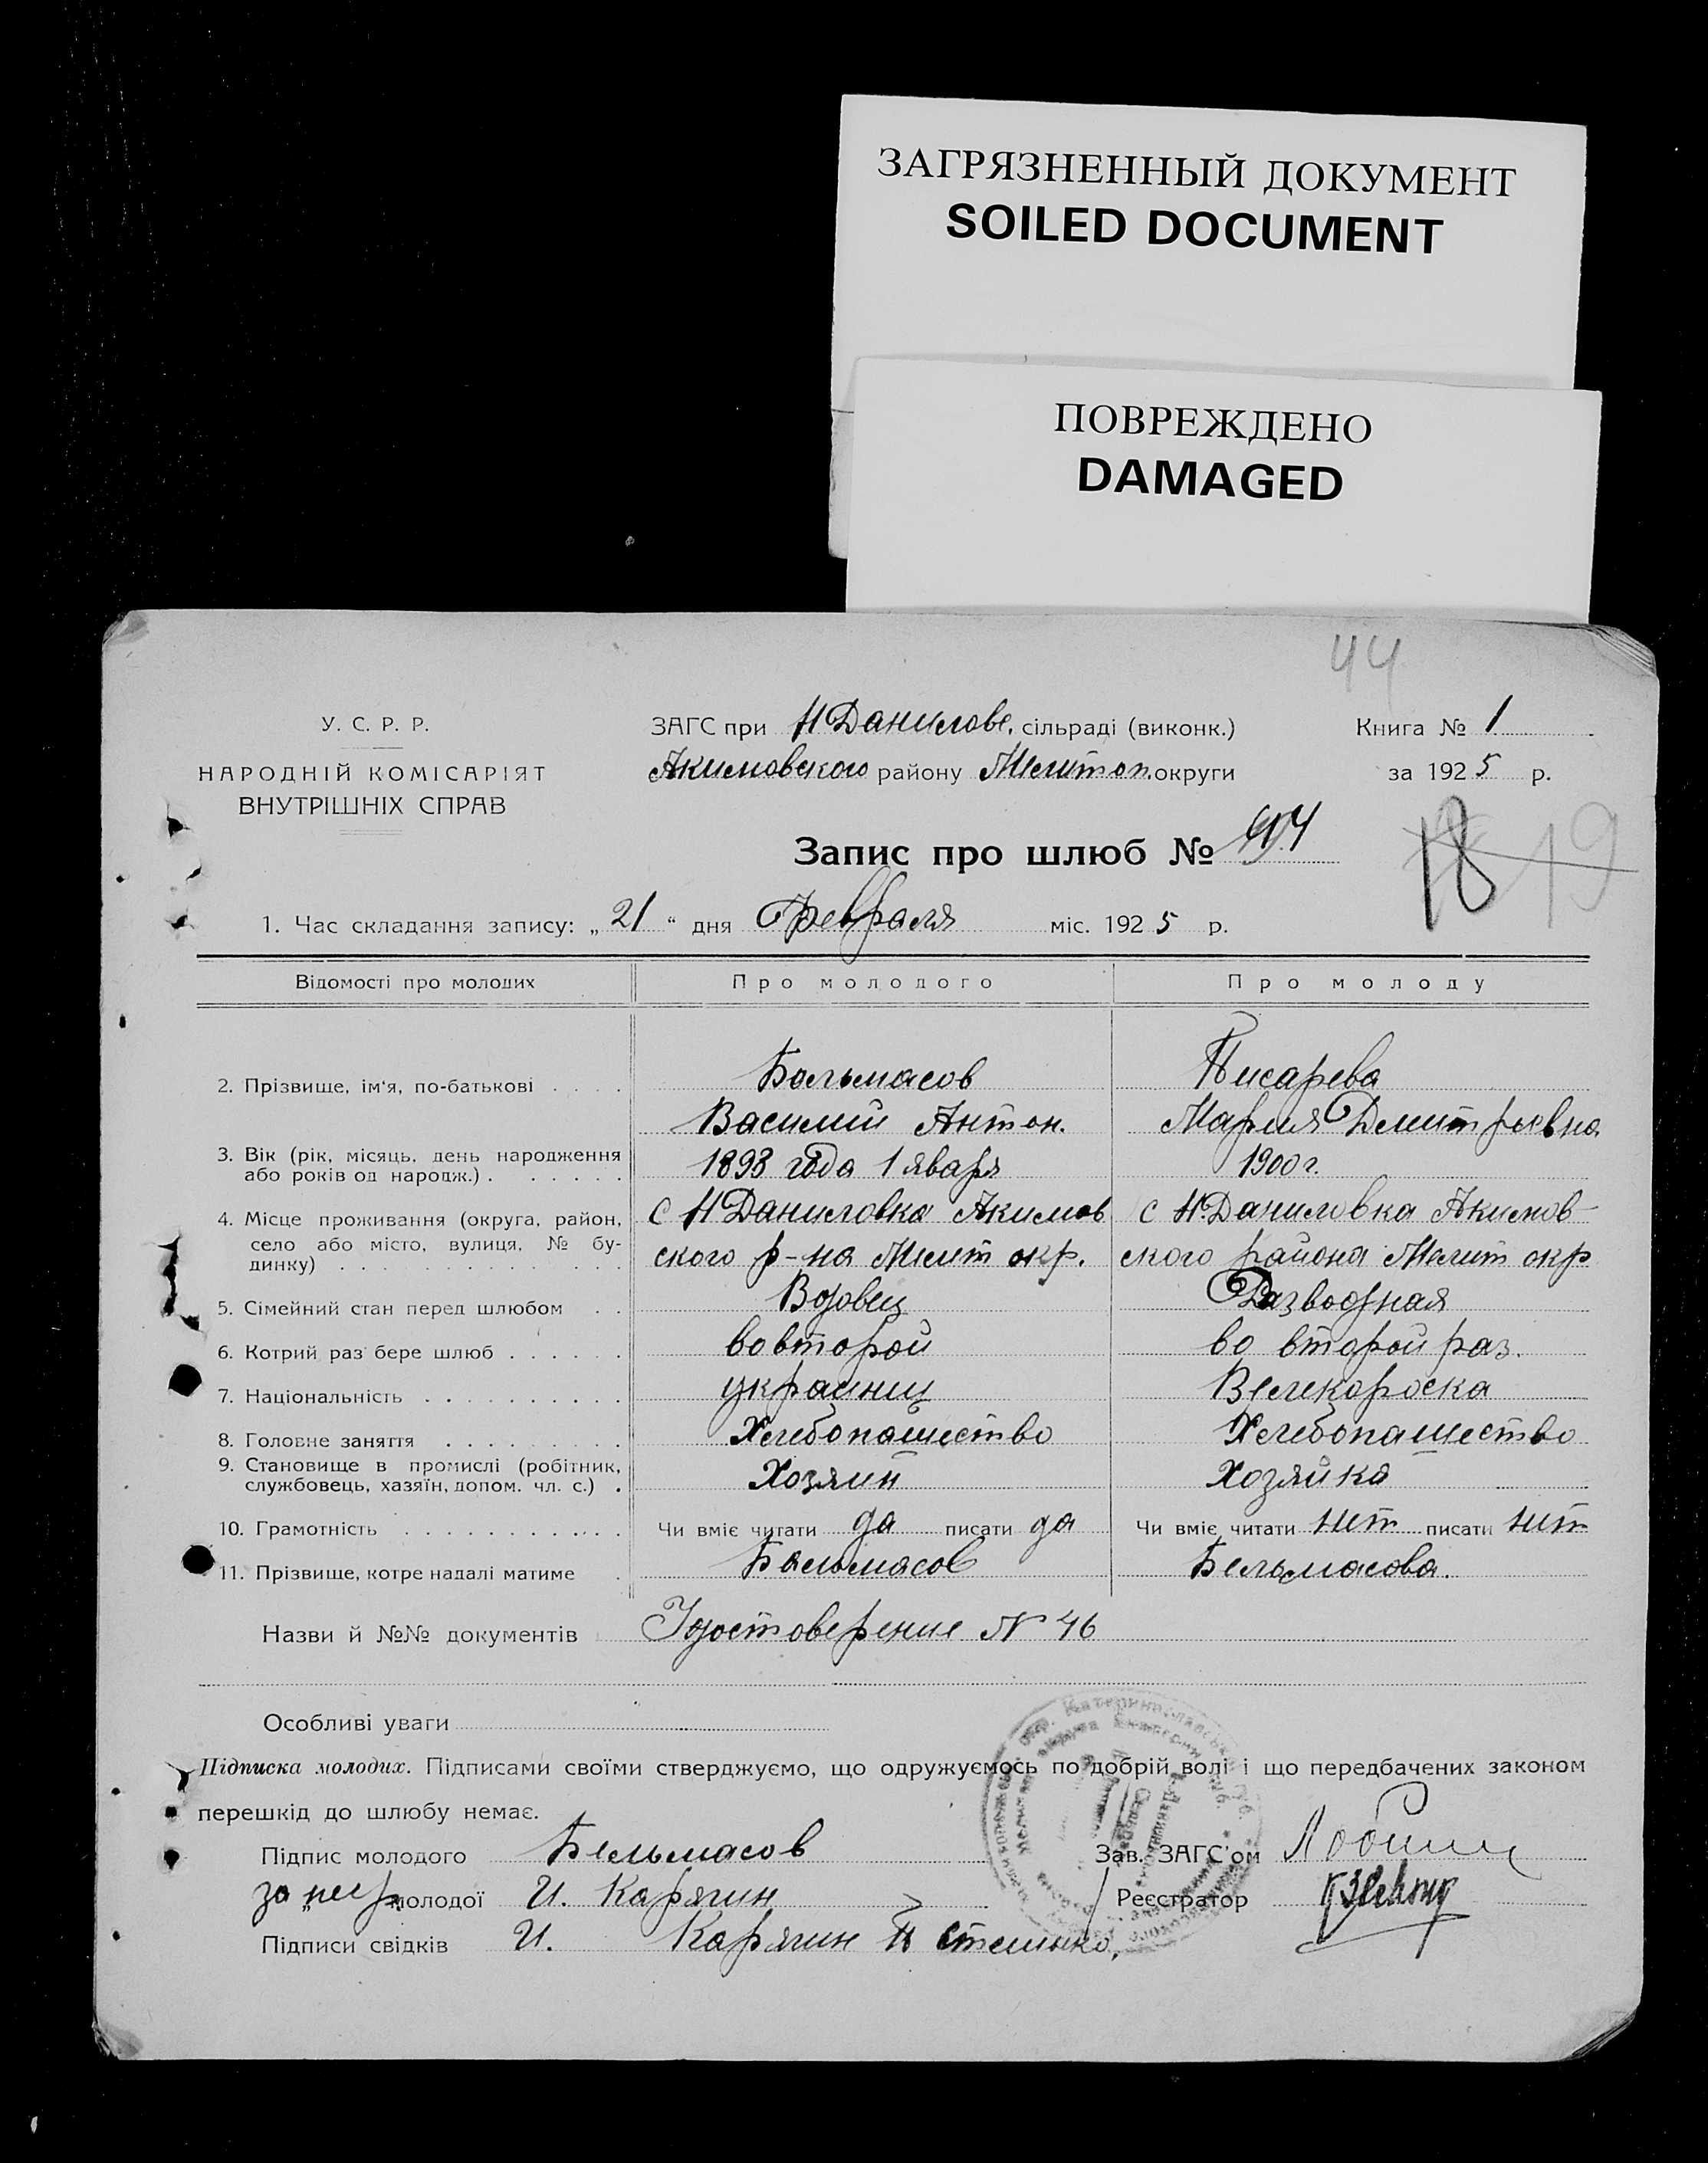 ЗАГРЯЗНЕННЫЙ ДОКУМЕНТ
SOILED DOCUMENT
ПОВРЕЖДЕНО
DAMAGED
44
У. С. Р. Р.
НАРОДНІЙ КОМІСАРІЯТ
ВНУТРІШНІХ СПРАВ
ЗАГС при Н Данилове. сільраді (виконк.)
Акимовского району Мелитоп. округи
Книга № 1
за 1925 р.
Запис про шлюб №
18 19
1. Час складання запису: „21“ дня Февраля міс. 1925 р.
Відомості про молодих Про молодого Про молоду
2. Прізвище, ім'я, по-батькові . . . . Бальмасов Писарева
Василий Антон. Мария Дмитриевна
3. Вік (рік, місяць, день народження або років од народж.) . . . . . . 1898 года 1 явара 1900 г.
4. Місце проживання (округа, район, село або місто, вулиця, № будинку) . . . с Н Даниловка Акимов с Н. Даниловка Акимов-
ского р-на Мелит окр. ского района Мелит окр
5. Сімейний стан перед шлюбом . . Вдовец Разводная
6. Котрий раз бере шлюб . . . . . . во второй во второй раз.
7. Національність . . . . . . . . . украинец Великороска
8. Головне заняття . . . . . . . . Хлебопашество Хлебопашество
9. Становище в промислі (робітник, службовець, хазяїн, допом. чл. с.) . Хозяин Хозяйка
10. Грамотність . . . . . . . . . . Чи вміє читати да писати да Чи вміє читати нет писати нет
11. Прізвище, котре надалі матиме . Бальмасов Бельмасова.
Назви й №№ документів Удостоверение N 46
Особливі уваги
Підписка молодих. Підписами своїми стверджуємо, що одружуємось по добрій волі і що передбачених законом
перешкід до шлюбу немає.
Підпис молодого Бельмасов Зав. ЗАГС'ом
за негр. молодої И. Карягин Реєстратор
Підписи свідків И. Карягин